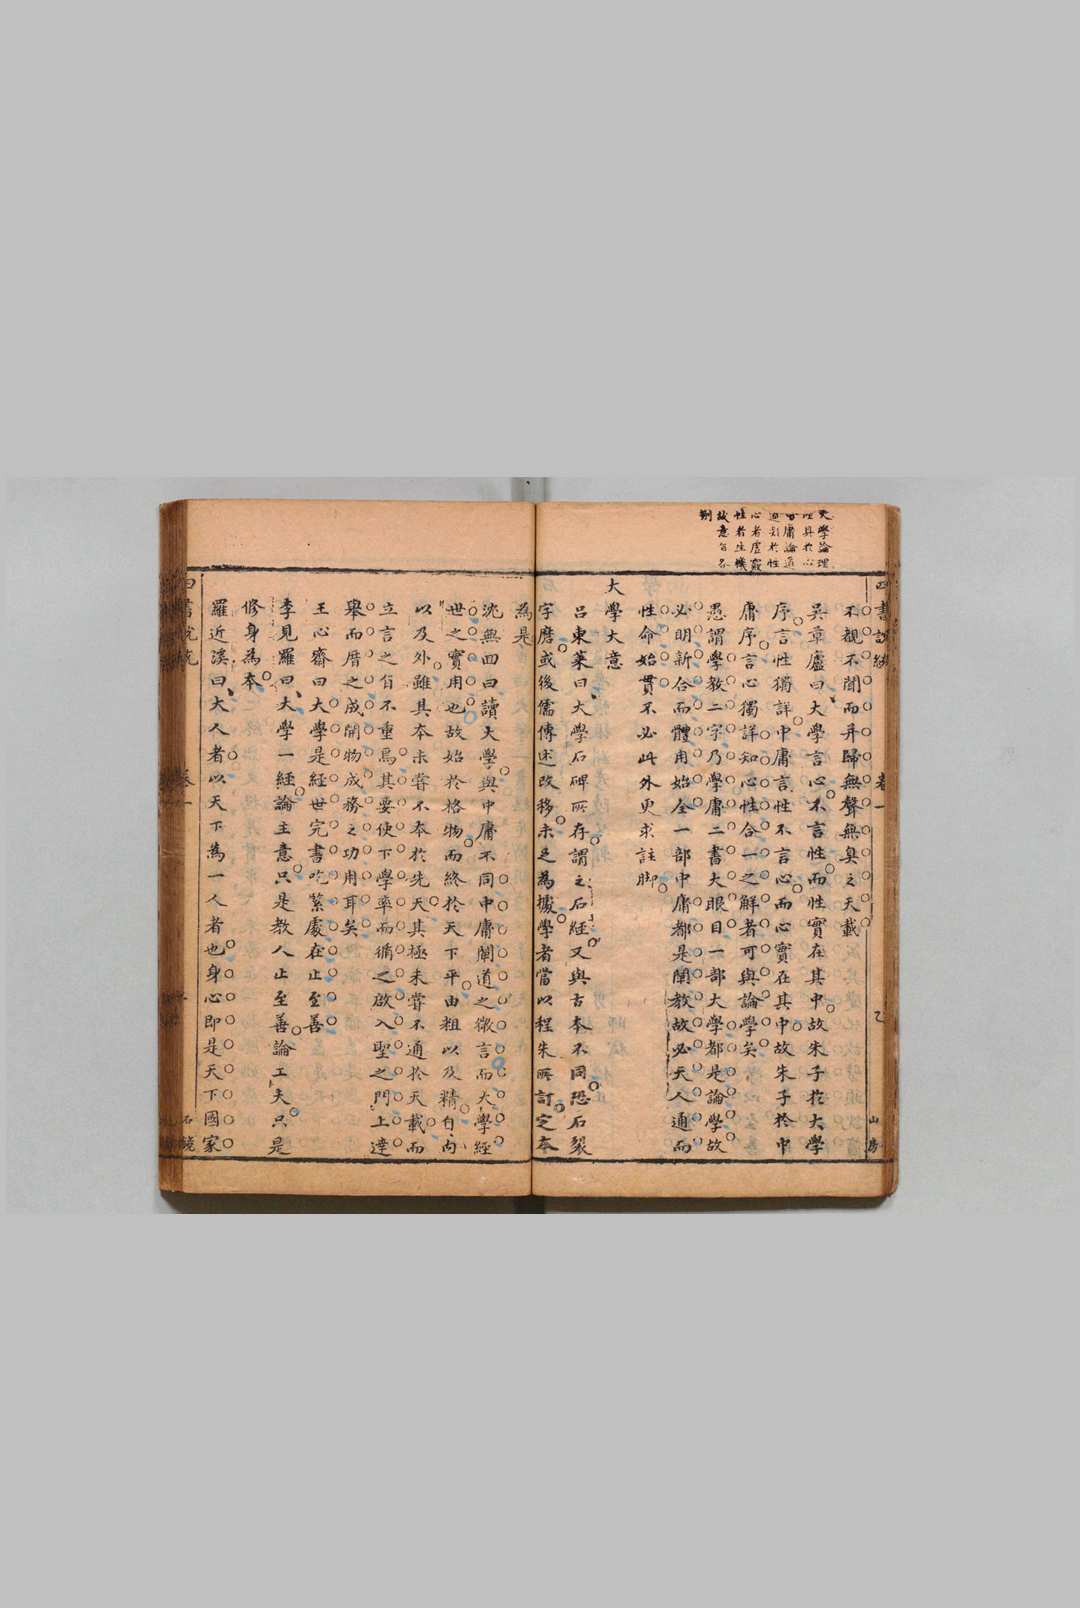 大學論理
性具於心
中庸論道
迥别於性
心者虛竅
性者生機
故意自各
别
四書説統
卷一
乙
山房
不覩不聞而并歸無聲無臭之天載
吳草廬曰大學言心不言性而性實在其中故朱子於大學
序言性獨詳中庸言性不言心而心實在其中故朱子於中
庸序言心獨詳知心性合一之解者可與論學矣
愚謂學教二字乃學庸二書大眼目一部大學都是論學故
必明新合而體用始全一部中庸都是闡教故必天人通而
性命始貫不必此外更求註脚
大學大意
吕東萊曰大學石碑所存謂之石經又與古本不同恐石裂
字磨或後儒傳述改移未足為據學者當以程朱所訂定本
為是
沈無回曰讀大學與中庸不同中庸闡道之微言而大學經
世之實用也故始於格物而終於天下平由粗以及精自内
以及外雖其本未嘗不本於先天其極未嘗不通於天載而
立言之旨不重焉其要使下學率而循之啟入聖之門上達
舉而厝之成開物成務之功用耳矣
王心齋曰大學是經世完書吃緊處在止至善
李見羅曰大學一經論主意只是教人止至善論工夫只是
修身為本
羅近溪曰大人者以天下為一人者也身心即是天下國家
四書説統
卷一
石鏡